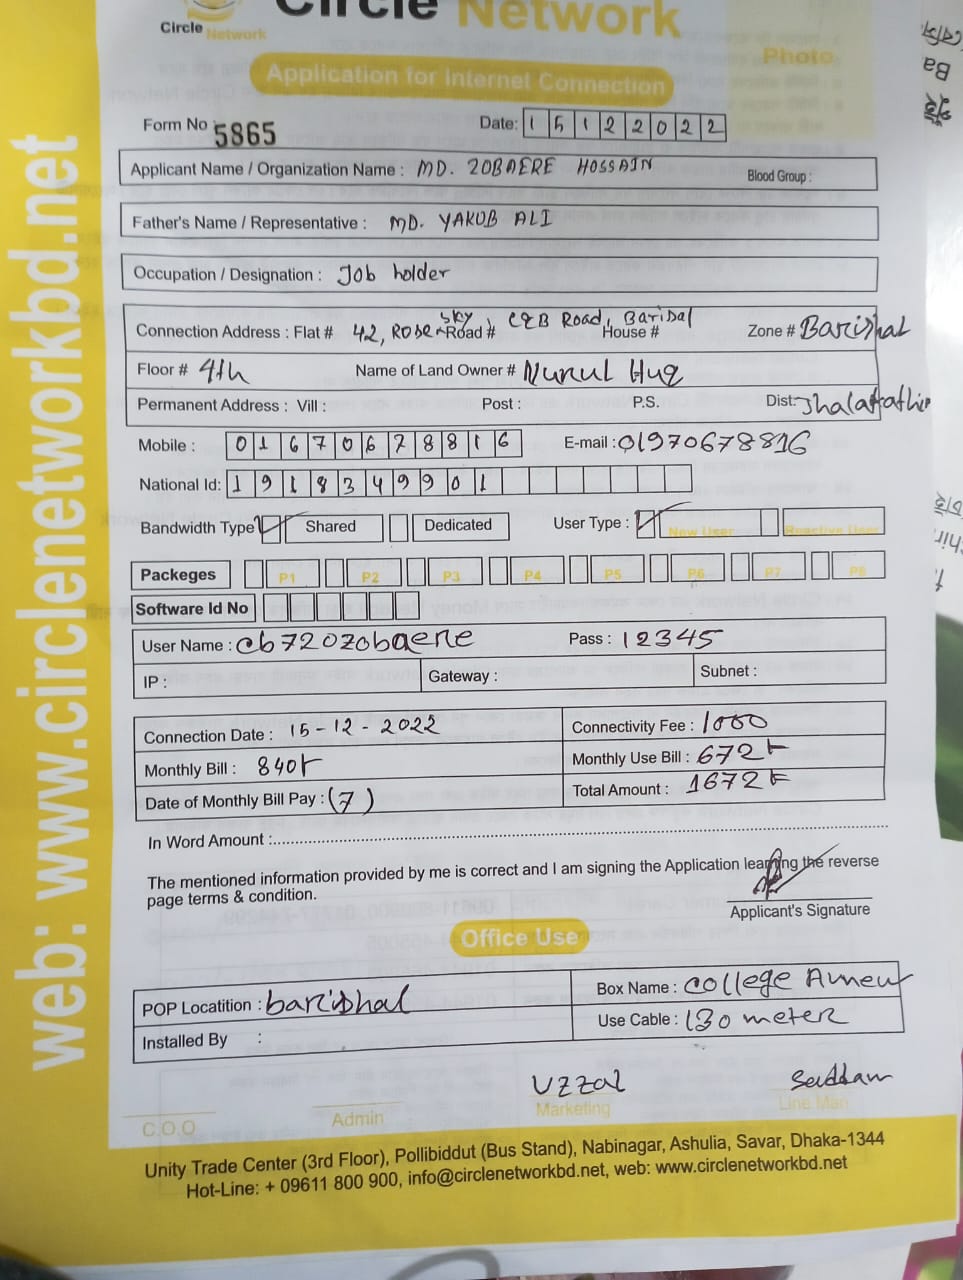 Circle Network
Circle Network
Photo
Application for Internet Connection
Form No 5865 Date: 15122022
Applicant Name / Organization Name : MD. ZOBAERE HOSSAIN Blood Group :
Father's Name / Representative : MD. YAKUB ALI
Occupation / Designation : Job holder
Connection Address : Flat # 42, Rose Sky Road # C&B Road, Barisal House # Zone # Barishal
Floor # 4th Name of Land Owner # Nurul Huq
Permanent Address : Vill : Post : P.S. Dist: Jhalakathi
Mobile : 01670678816 E-mail : 01970678816
National Id: 1918349901
Bandwidth Type Shared Dedicated User Type : New User Reactive User
Packeges P1 P2 P3 P4 P5 P6 P7 P8
Software Id No
User Name : cb720zobaere Pass : 12345
IP : Gateway : Subnet :
Connection Date : 15-12-2022 Connectivity Fee : 1000
Monthly Bill : 840 Monthly Use Bill : 672
Date of Monthly Bill Pay : (7) Total Amount : 1672
In Word Amount :
The mentioned information provided by me is correct and I am signing the Application learning the reverse
page terms & condition.
Applicant's Signature
Office Use
POP Locatition : barishal Box Name : College
Installed By : Use Cable : 130 meter
Uzzal Saddam
C.O.O Admin Marketing Line Man
Unity Trade Center (3rd Floor), Pollibiddut (Bus Stand), Nabinagar, Ashulia, Savar, Dhaka-1344
Hot-Line: + 09611 800 900, info@circlenetworkbd.net, web: www.circlenetworkbd.net
web: www.circlenetworkbd.net